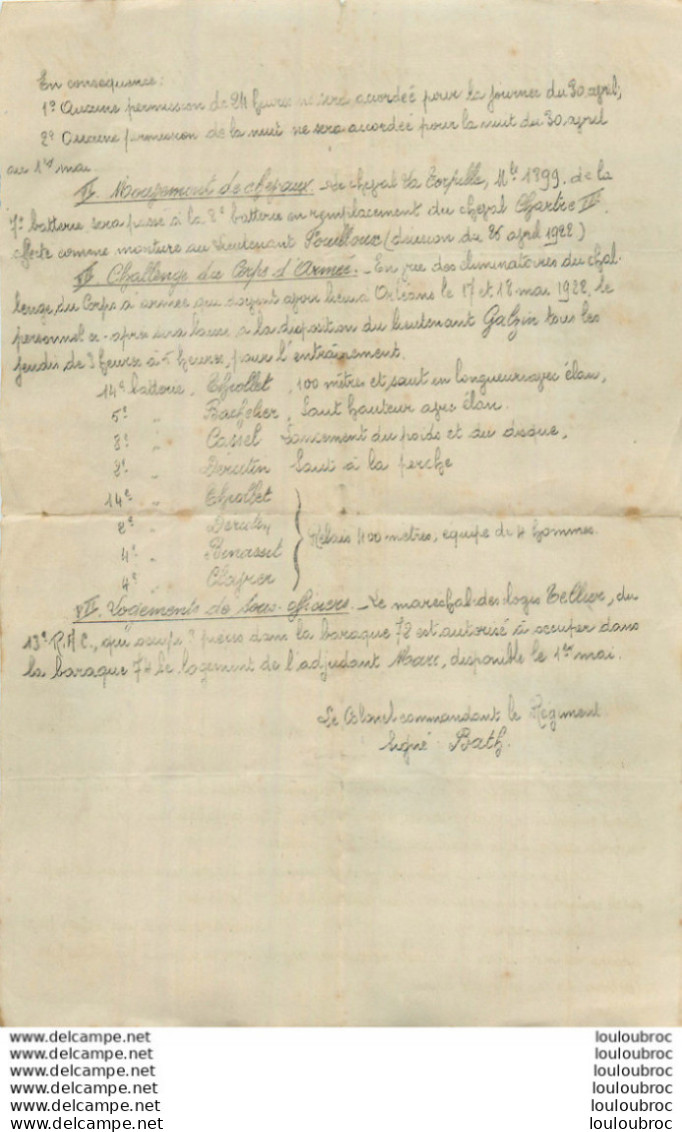 En consequence:
1º Aucune permission de 24 heures ne sera accordée pour la journée du 30 april;
2º Aucune permission de la nuit ne sera accordée pour la nuit du 30 april
au 1er mai
V. Mouvement de chevaux. - Le cheval La Torpille, Mle 1899. de la
7e batterie sera passé à la 2e batterie en remplacement du cheval Chartre IV.
affecté comme monture au Lieutenant Fouilloux (décision du 25 april 1922)
VI Challenge du Corps d'Armée. - En vue des éliminatoires du chal-
lenge du Corps d'armée qui doivent avoir lieu à Orléans le 17 et 18 mai 1922, le
personnel ci-après sera laissé à la disposition du lieutenant Galpin tous les
jeudis de 3 heures à 5 heures, pour l'entraînement.
14e batterie. Thiollet, 100 mètres et saut en longueur avec élan,
5e " Bachelier, Saut hauteur avec élan.
3e " Cassel Lancement du poids et du disque,
8e " Dérutin Saut à la perche
14e " Thiollet
8e " Derutin
Relais 400 mètres, équipe de 4 hommes.
4e " Binasset
4e " Clapier
VII. Logements de sous-officiers. - Le maréchal-des-logis Tellier, du
13e R.A.C., qui occupe 2 pièces dans la baraque 72 est autorisé à occuper dans
la baraque 74 le logement de l'adjudant Marc, disponible le 1er mai.
Le Colonel commandant le Régiment
signé Bath.
www.delcampe.net louloubroc
www.delcampe.net louloubroc
www.delcampe.net louloubroc
www.delcampe.net louloubroc
www.delcampe.net louloubroc
www.delcampe.net louloubroc